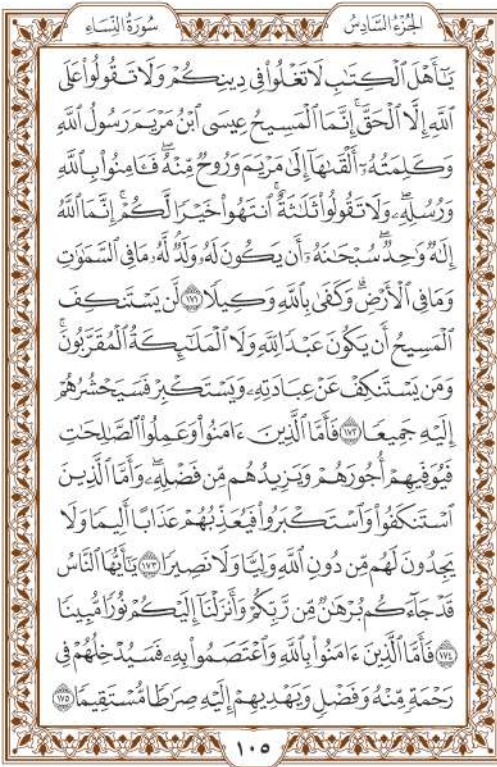 الجُزْءُ السَّادِسُ سُورَةُ النِّسَاءِ
يَـٰٓأَهْلَ ٱلْكِتَـٰبِ لَا تَغْلُوا۟ فِى دِينِكُمْ وَلَا تَقُولُوا۟ عَلَى
ٱللَّهِ إِلَّا ٱلْحَقَّۚ إِنَّمَا ٱلْمَسِيحُ عِيسَى ٱبْنُ مَرْيَمَ رَسُولُ ٱللَّهِ
وَكَلِمَتُهُۥٓ أَلْقَىٰهَآ إِلَىٰ مَرْيَمَ وَرُوحٌ مِّنْهُۖ فَـَٔامِنُوا۟ بِٱللَّهِ
وَرُسُلِهِۦۖ وَلَا تَقُولُوا۟ ثَلَـٰثَةٌۚ ٱنتَهُوا۟ خَيْرًا لَّكُمْۚ إِنَّمَا ٱللَّهُ
إِلَـٰهٌ وَٰحِدٌۖ سُبْحَـٰنَهُۥٓ أَن يَكُونَ لَهُۥ وَلَدٌۘ لَّهُۥ مَا فِى ٱلسَّمَـٰوَٰتِ
وَمَا فِى ٱلْأَرْضِۗ وَكَفَىٰ بِٱللَّهِ وَكِيلًا ١٧١ لَّن يَسْتَنكِفَ
ٱلْمَسِيحُ أَن يَكُونَ عَبْدًا لِّلَّهِ وَلَا ٱلْمَلَـٰٓئِكَةُ ٱلْمُقَرَّبُونَۚ
وَمَن يَسْتَنكِفْ عَنْ عِبَادَتِهِۦ وَيَسْتَكْبِرْ فَسَيَحْشُرُهُمْ
إِلَيْهِ جَمِيعًا ١٧٢ فَأَمَّا ٱلَّذِينَ ءَامَنُوا۟ وَعَمِلُوا۟ ٱلصَّـٰلِحَـٰتِ
فَيُوَفِّيهِمْ أُجُورَهُمْ وَيَزِيدُهُم مِّن فَضْلِهِۦۖ وَأَمَّا ٱلَّذِينَ
ٱسْتَنكَفُوا۟ وَٱسْتَكْبَرُوا۟ فَيُعَذِّبُهُمْ عَذَابًا أَلِيمًا وَلَا
يَجِدُونَ لَهُم مِّن دُونِ ٱللَّهِ وَلِيًّا وَلَا نَصِيرًا ١٧٣ يَـٰٓأَيُّهَا ٱلنَّاسُ
قَدْ جَآءَكُم بُرْهَـٰنٌ مِّن رَّبِّكُمْ وَأَنزَلْنَآ إِلَيْكُمْ نُورًا مُّبِينًا
١٧٤ فَأَمَّا ٱلَّذِينَ ءَامَنُوا۟ بِٱللَّهِ وَٱعْتَصَمُوا۟ بِهِۦ فَسَيُدْخِلُهُمْ فِى
رَحْمَةٍ مِّنْهُ وَفَضْلٍ وَيَهْدِيهِمْ إِلَيْهِ صِرَٰطًا مُّسْتَقِيمًا ١٧٥
١٠٥